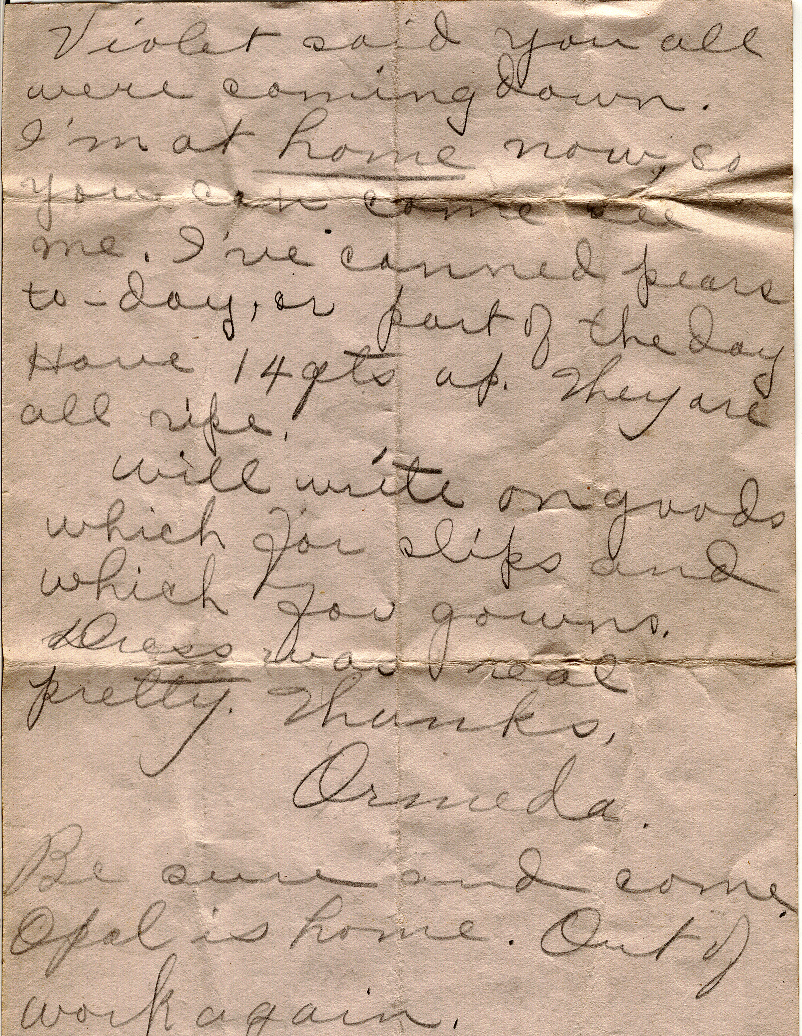 Violet said you all
were coming down.
I'm at home now, so
you can come see
me. I've canned pears
to-day, or part of the day
Have 14 qts up. They are
all ripe.
Will write on goods
which for slips and
which for gowns.
Dress was real
pretty. Thanks,
Ormeda.
Be sure and come.
Opal is home. Out of
work again.